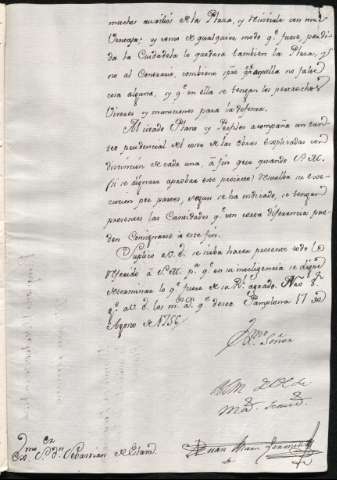 muchos auxilios de la Plaza, y
y como de qualquiera modo qᵉ fuese perdi-
da la Ciudadela lo quedara tambien la Plaza, y
no al Contrario, combiene qᵉ en aquella no falte
cosa alguna, y qᵉ en ella se tengan los pertrechos
Viveres y municiones para la defensa.
Al citado Plano y Perfiles acompaña un Cal-
culo prudencial del coste de las Obras explicadas con
distincion de cada una, à fin qᵉ quando S. M.
(si se dignare aprobar este proyecto) resuelba se exe-
cuten por partes, segun se ha indicado, se tengan
presentes las Cantidades qᵉ con corta diferencia pue-
den Consignarse à este fin.
Suplico a V.E. se sirba hacer presente todo lo
referido à S.M. pᵃ qᵉ en su inteligencia se digne
determinar lo qᵉ fuere de su Rˡ agrado. Dios gᵉ
à V.E. los mˢ aˢ qᵉ deseo Pamplona 17 de
Agosto de 1756
Exmo Señor
BLM de V.E. su
mas
Juan Martin
Exmo Sᵒʳ Dⁿ Sebastian de Eslava